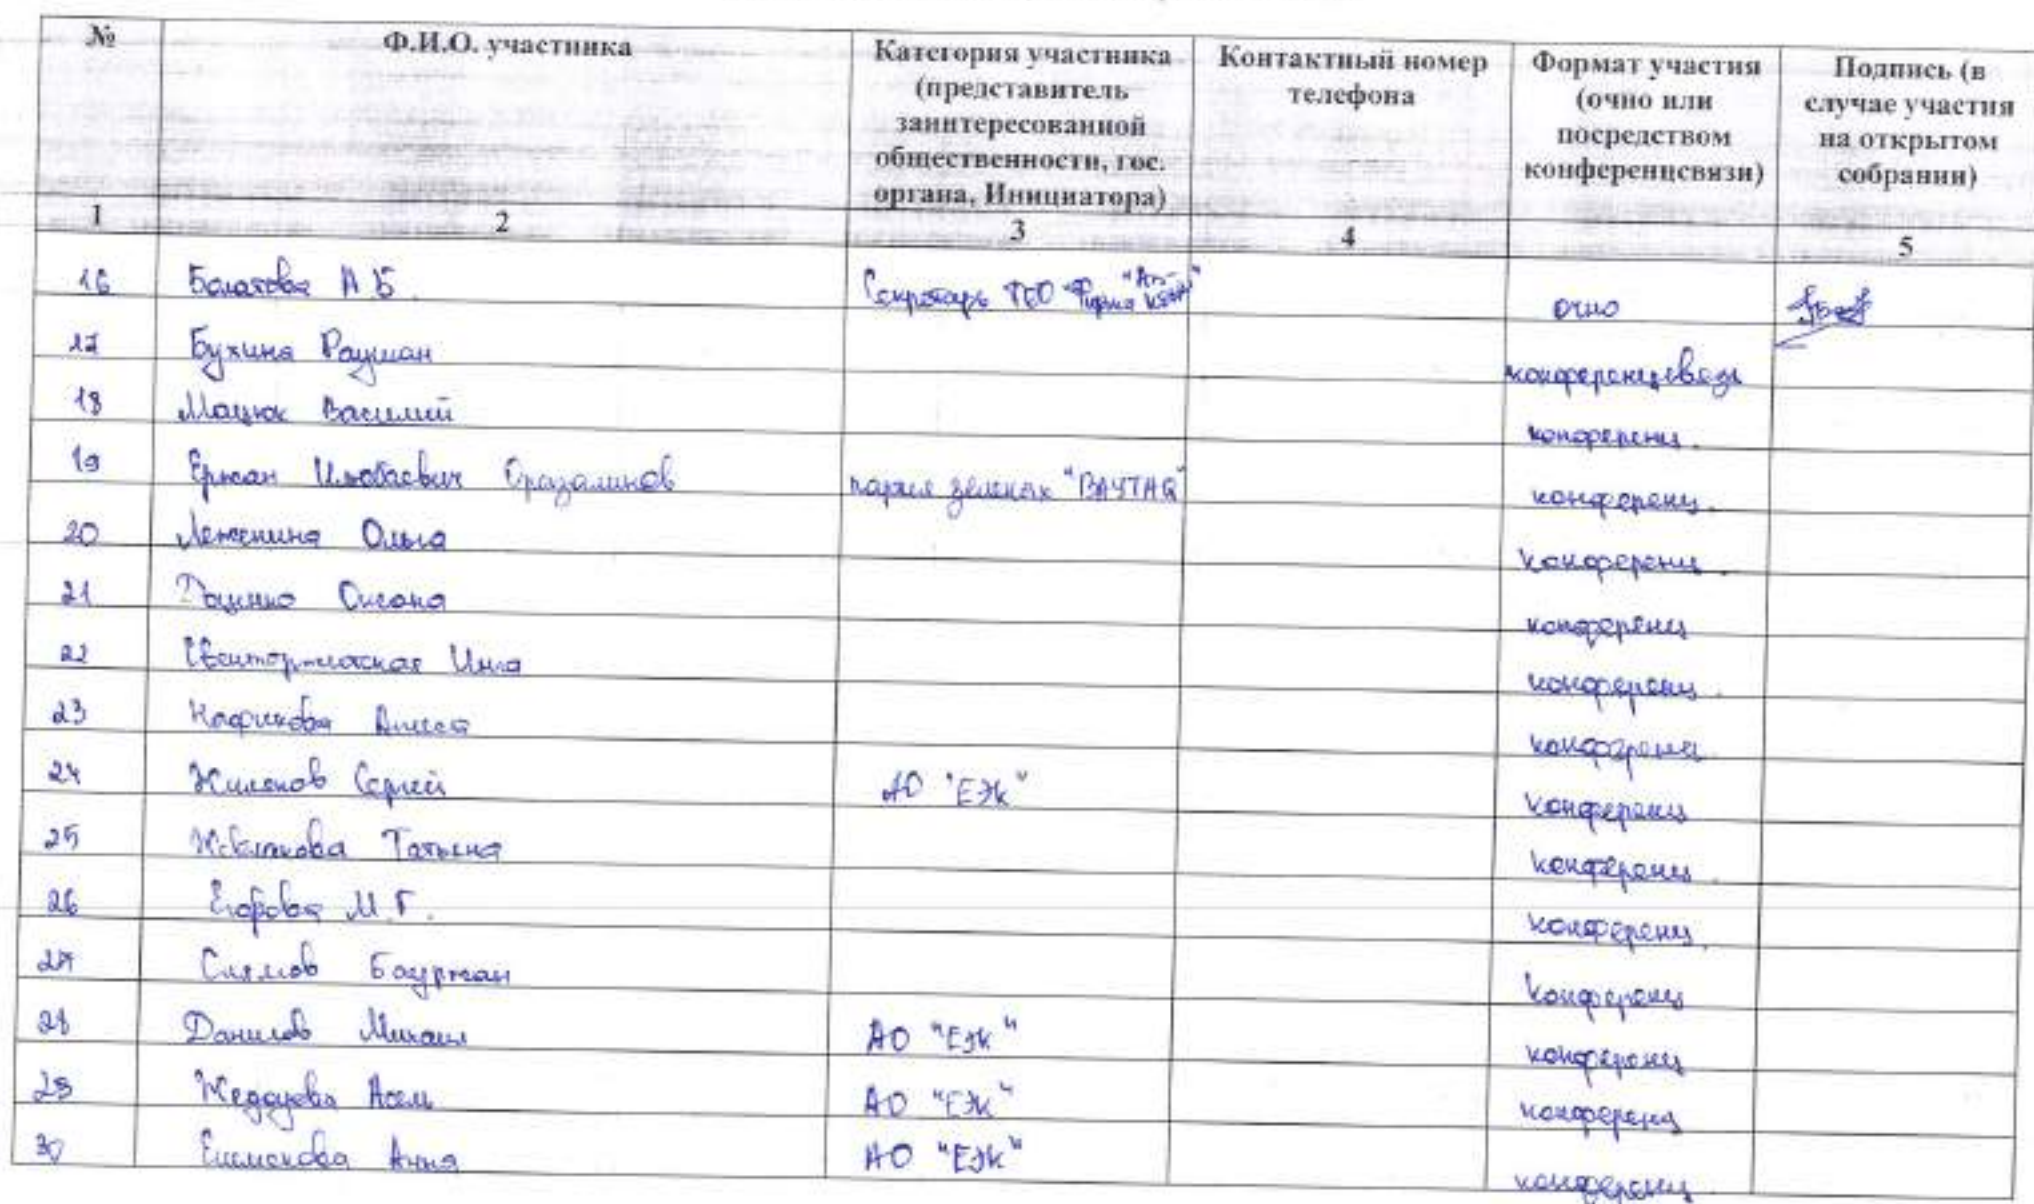 № Ф.И.О. участника Категория участника (представитель заинтересованной общественности, гос. органа, Инициатора) Контактный номер телефона Формат участия (очно или посредством конференцсвязи) Подпись (в случае участия на открытом собрании)
1 2 3 4 5
16 Болатова А Б. Секретарь ТОО "Фирма очно
17 Бухина Раушан конференцсвязь
18 Мацюк Василий конференц.
19 Ержан Оразалинов партия зеленых "BAYTAQ" конференц.
20 Леженина Ольга конференц.
21 Доценко Оксана конференц
22 Инга конференц.
23 Нафикова конференц.
24 Жиленков Сергей АО "ЕЭК" конференц
25 Татьяна конференц.
26 Егорова М.Г. конференц.
27 Слямов Бауржан конференц
28 Данилов Михаил АО "ЕЭК" конференц
29 Асем АО "ЕЭК" конференц
30 Анна АО "ЕЭК" конференц.